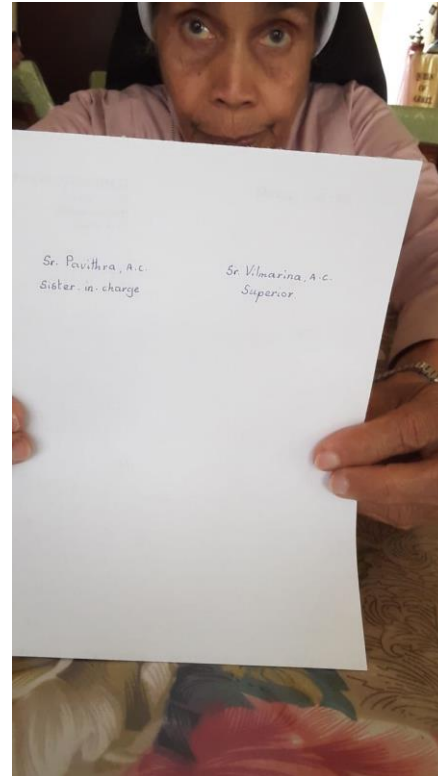 Sr. Pavithra, A.C.
Sister-in-charge
Sr. Vilmarina, A.C.
Superior.
QUEEN
OF